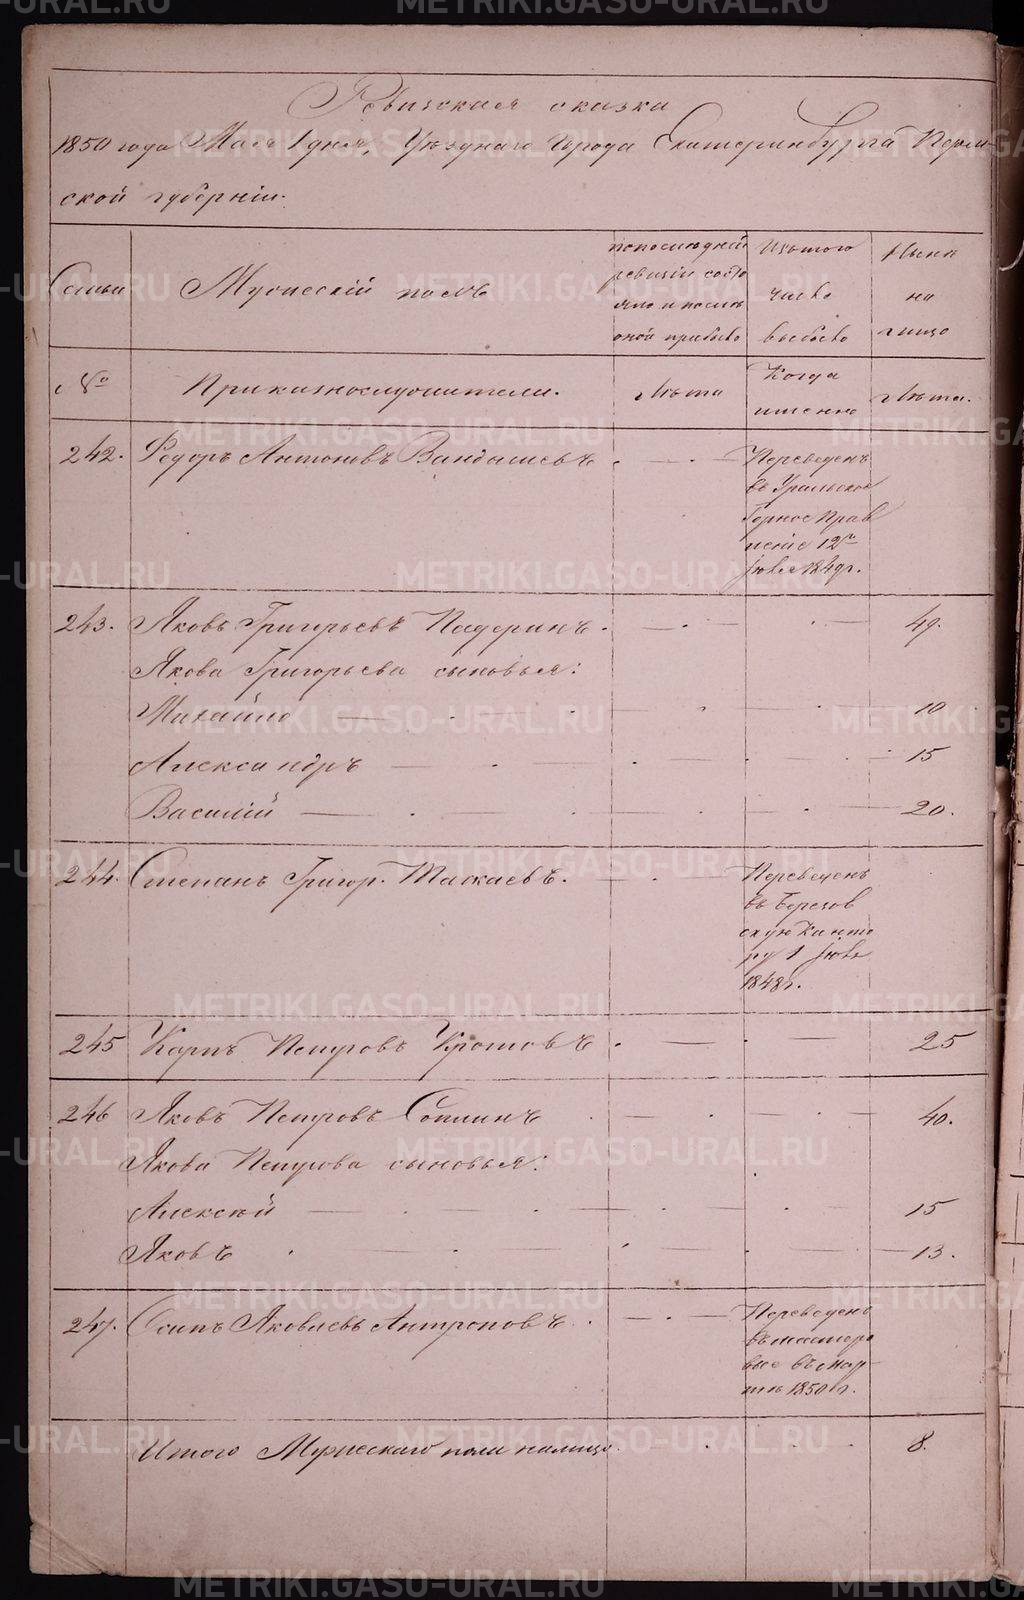 Ревизская сказка
1850 года Мая 1 дня, Уезднаго Города Екатеринбурга Перм-
ской губернiи.
Семьи
Мужескiй полъ
по последней
ревизiи состо
яло и после
оной прибыло
Изъ того
числа
выбыло
Ныне
на
лицо
№
Приказнослужители.
Лета
Когда
именно
Лета.
242. Федоръ Антоновъ Вандашевъ
Переведенъ
въ Уральское
Горное Прав
ленiе 12го
1849 г.
243. Яковъ Григорьевъ Падеринъ. 49.
Якова Григорьева сыновья:
Михайло 10
Александръ 15
Василiй 20.
244. Степанъ Григор. Таскаевъ.
Переведенъ
въ Березов
скую Конто
ру 1
1848 г.
245 Карпъ Петровъ Кротовъ 25
246 Яковъ Петровъ Соплинъ 40.
Якова Петрова сыновья:
Алексей 15
Яковъ 13.
247. Осипъ Яковлевъ Антроповъ
Переведенъ
въ мастеро
вые въ мар-
те 1850 г.
Итого Мужескаго пола на лицо 8.
METRIKI.GASO-URAL.RU